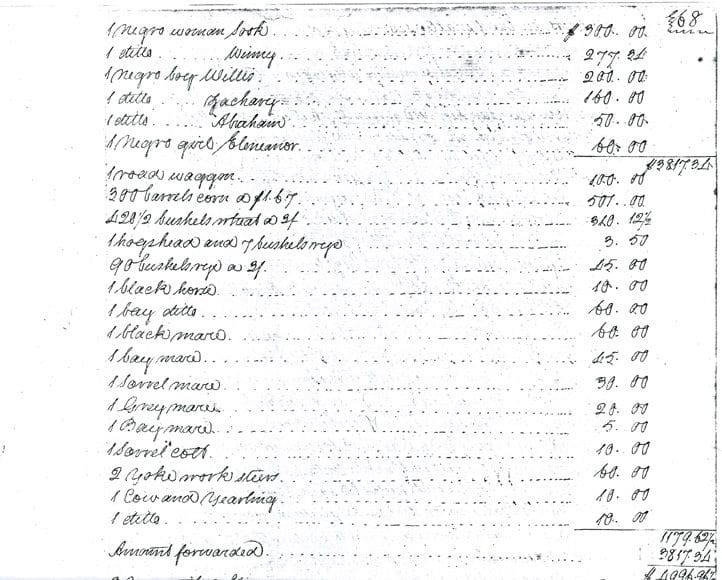 268
1 negro woman Sook $300.00
1 ditto Winny 277.34
1 negro boy Willis 200.00
1 ditto Zachary 160.00
1 ditto Abraham 50.00
1 Negro girl Eleneanor 60.00
$3817.34
1 road waggon 100.00
300 barrels corn a $1.67 501.00
420 1/2 bushels wheat a 3/. 210.12½
1 hogshead and 7 bushels rye 3.50
90 bushels rye a 3/. 45.00
1 black horse 10.00
1 bay ditto 60.00
1 black mare 60.00
1 bay mare 45.00
1 sorrel mare 30.00
1 Grey mare 20.00
1 Bay mare 5.00
1 Sorrel colt 10.00
2 Yoke work steers 60.00
1 Cow and Yearling 10.00
1 ditto 10.00
1179.62½
Amount forwarded 3817.34
$4996.96½